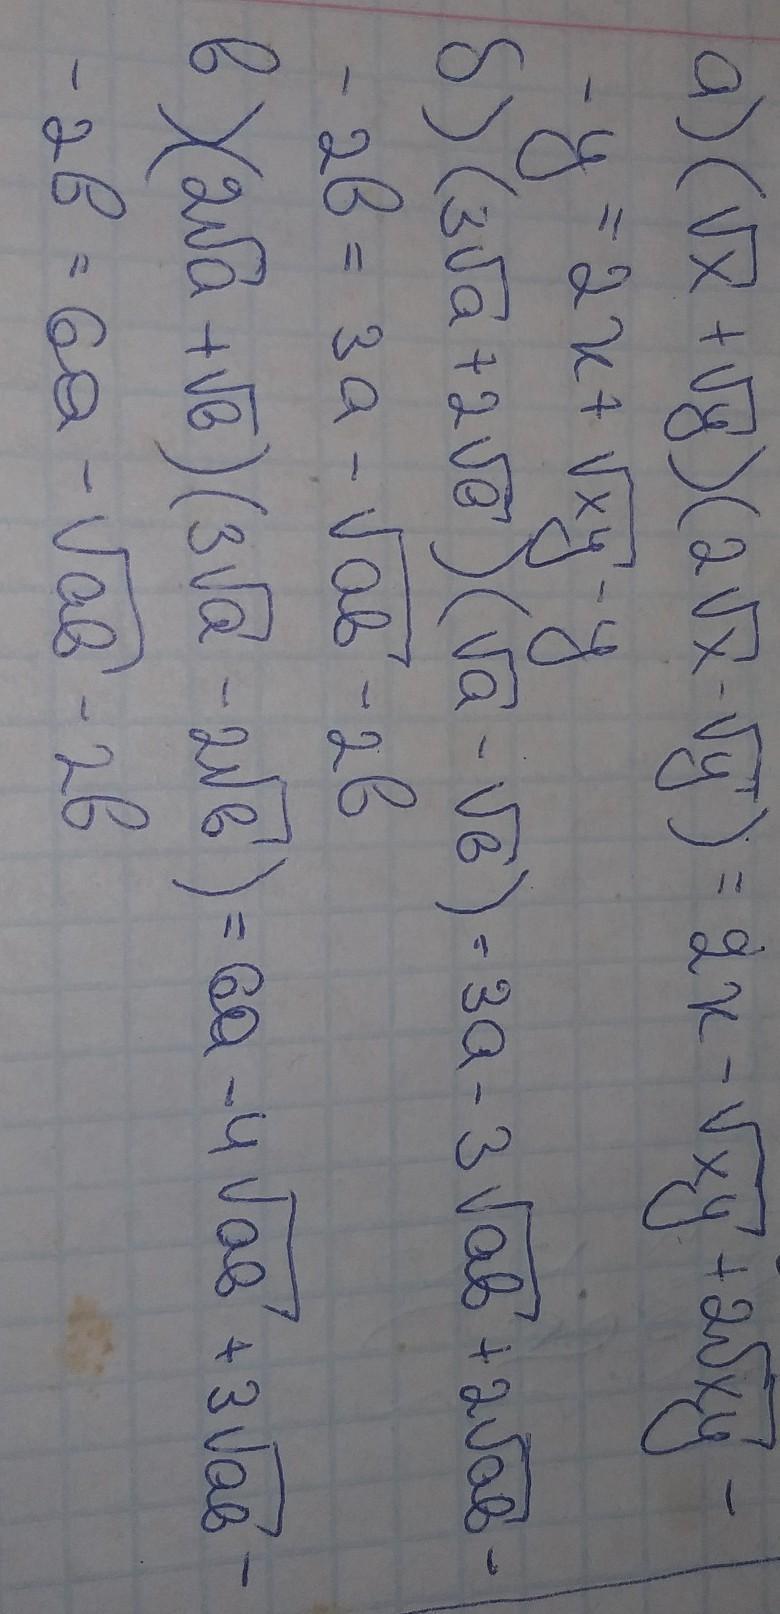 а) (√x + √y)(2√x - √y) = 2x - √xy + 2√xy -
- y = 2x + √xy - y
б) (3√a + 2√в)(√a - √в) = 3a - 3√aв + 2√aв -
- 2в = 3a - √aв - 2в
в) (2√a + √в)(3√a - 2√в) = 6a - 4√aв + 3√aв -
- 2в = 6a - √aв - 2в